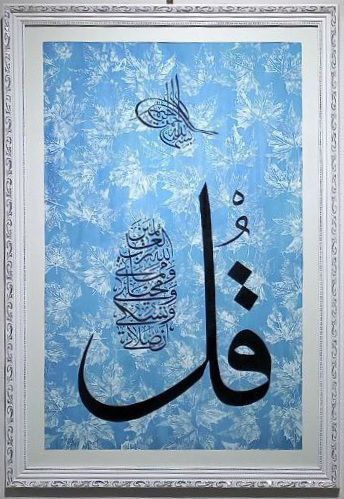 بسم الله الرحمن الرحيم
قُلْ
ان صلاتي
ونسكي
ومحياي
ومماتي
لله رب
العالمين